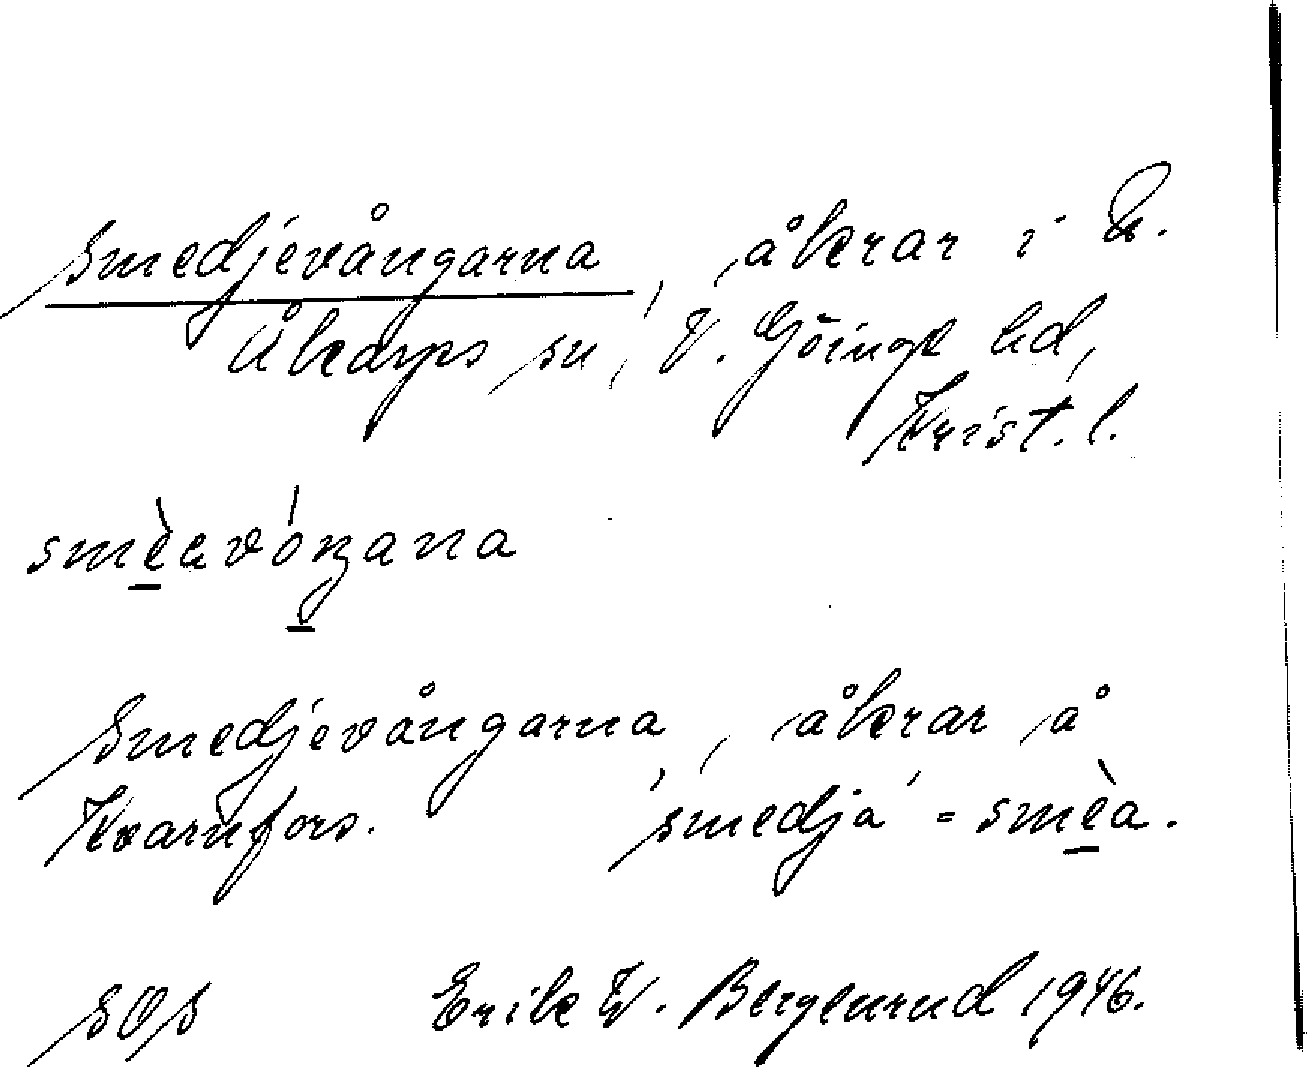 Smedjevångarna, åkrar i N.
Åkarps sn, V. Göinge hd,
Krist. l.
smèavóŋana
Smedjevångarna, åkrar å
Kvarnfors. 'smedja' = smèa.
SOS Erik W. 1946.